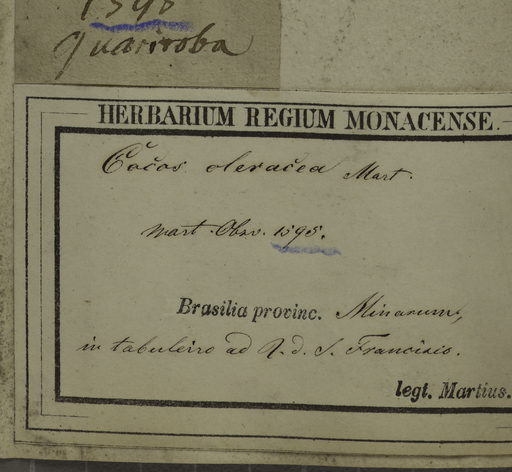 1595
Guariroba
HERBARIUM REGIUM MONACENSE.
Cocos oleracea Mart.
Mart. Obs. 1595.
Brasilia provinc. Minarum,
in tabuleiro ad R. d. S. Francisco.
legt. Martius.